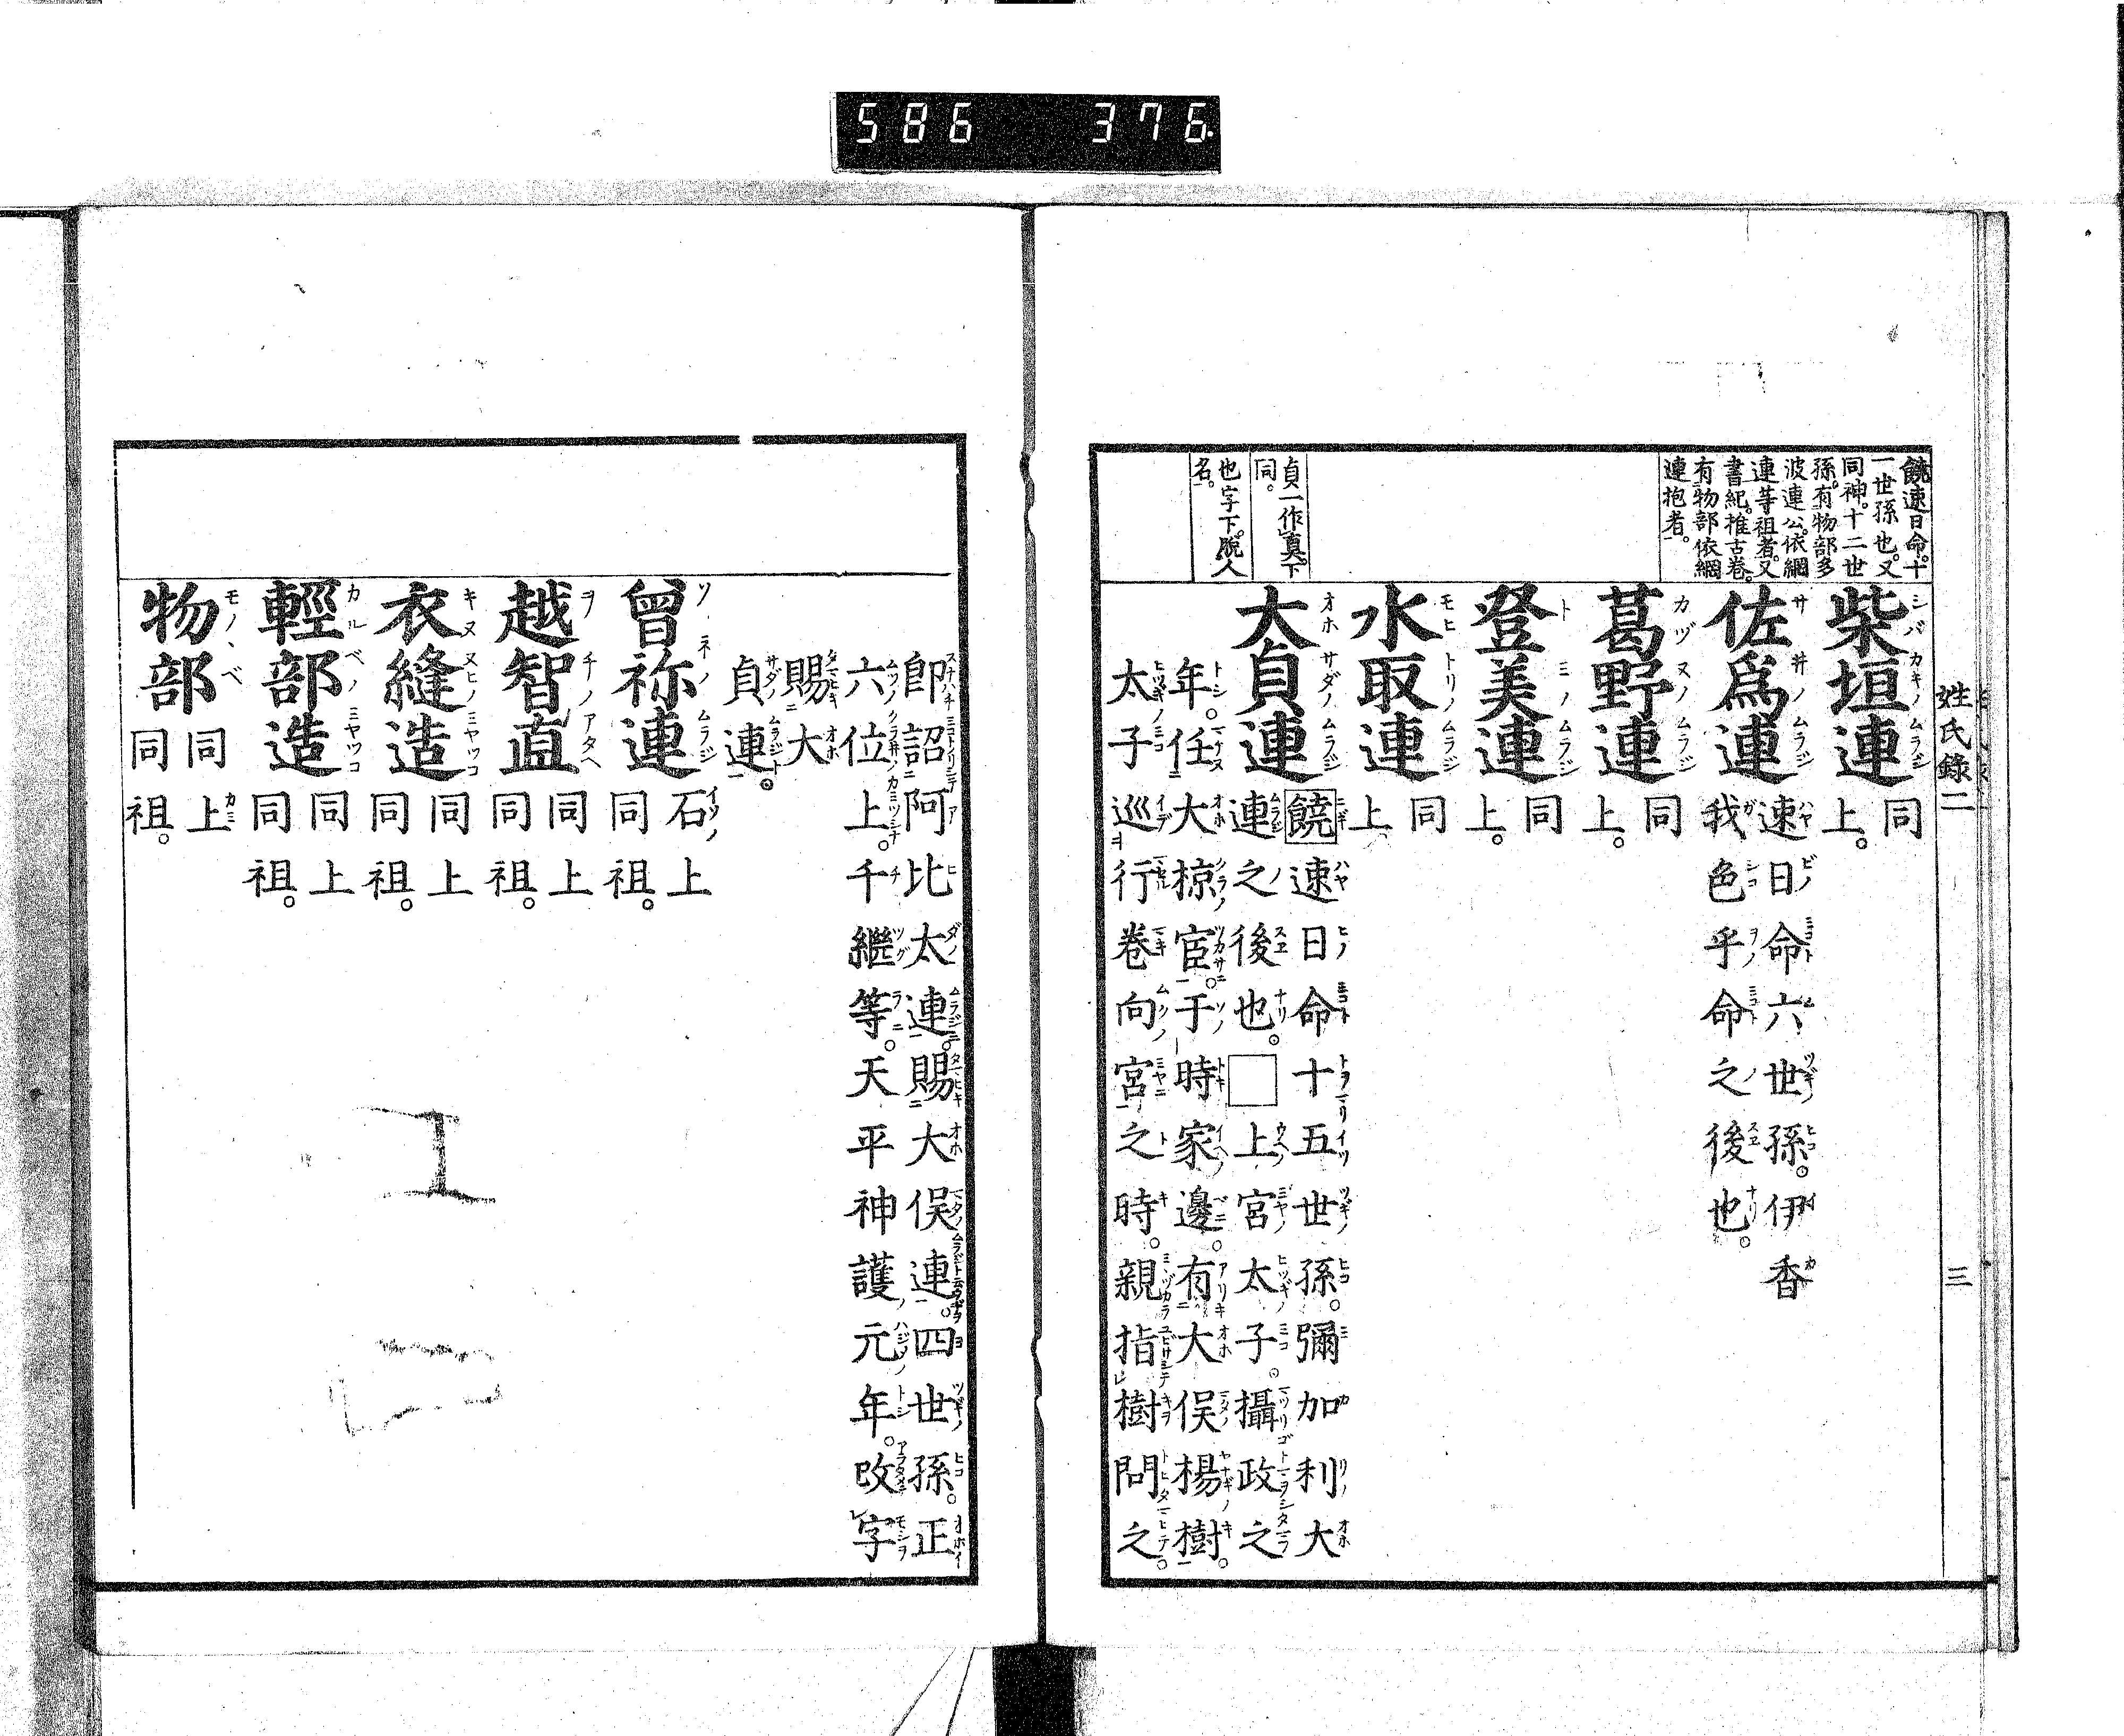 586 376
姓氏錄二 三
饒速日命。十
一世孫也。又
同神。十二世
孫。有物部多
波連公。依網
連等祖者。又
書紀。推古卷。
有物部依網
連抱者。
貞一作眞。下
同。
也字下。脫人
名。
柴垣連 同上。
佐爲連 速日命六世孫。伊香
我色乎命之後也。
葛野連 同上。
登美連 同上。
水取連 同上
大貞連 饒速日命十五世孫。彌加利大
連之後也。□上宮太子。攝政之
年。任大椋官。于時家邊。有大俣楊樹。
太子巡行卷向宮之時。親指樹問之
卽詔阿比太連。賜大俣連。四世孫。正
六位上。千繼等。天平神護元年。改字
賜大
貞連。
曾祢連 石上同祖。
越智直 同上同祖。
衣縫造 同上同祖。
輕部造 同上同祖。
物部 同上同祖。